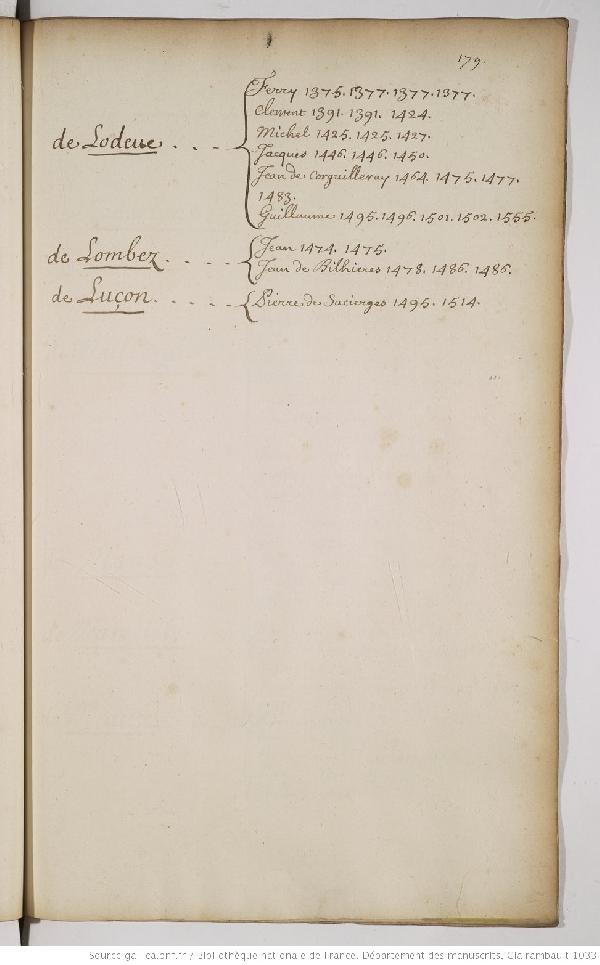 179.
Ferry 1375. 1377. 1377. 1377.
Clement 1391. 1391. 1424.
de Lodeue . . . . Michel 1425. 1425. 1427.
Jacques 1446. 1446. 1450.
Jean de Corguilleray 1464. 1475. 1477.
1483.
Guillaume 1495. 1496. 1501. 1502. 1555.
de Lombez . . . . Jean 1474. 1475.
Jean de Bilhieres 1478. 1486. 1486.
de Luçon . . . . . Pierre de Sacierges 1495. 1514.
Source gallica.bnf.fr / Bibliothèque nationale de France. Département des manuscrits. Clairambault 1033